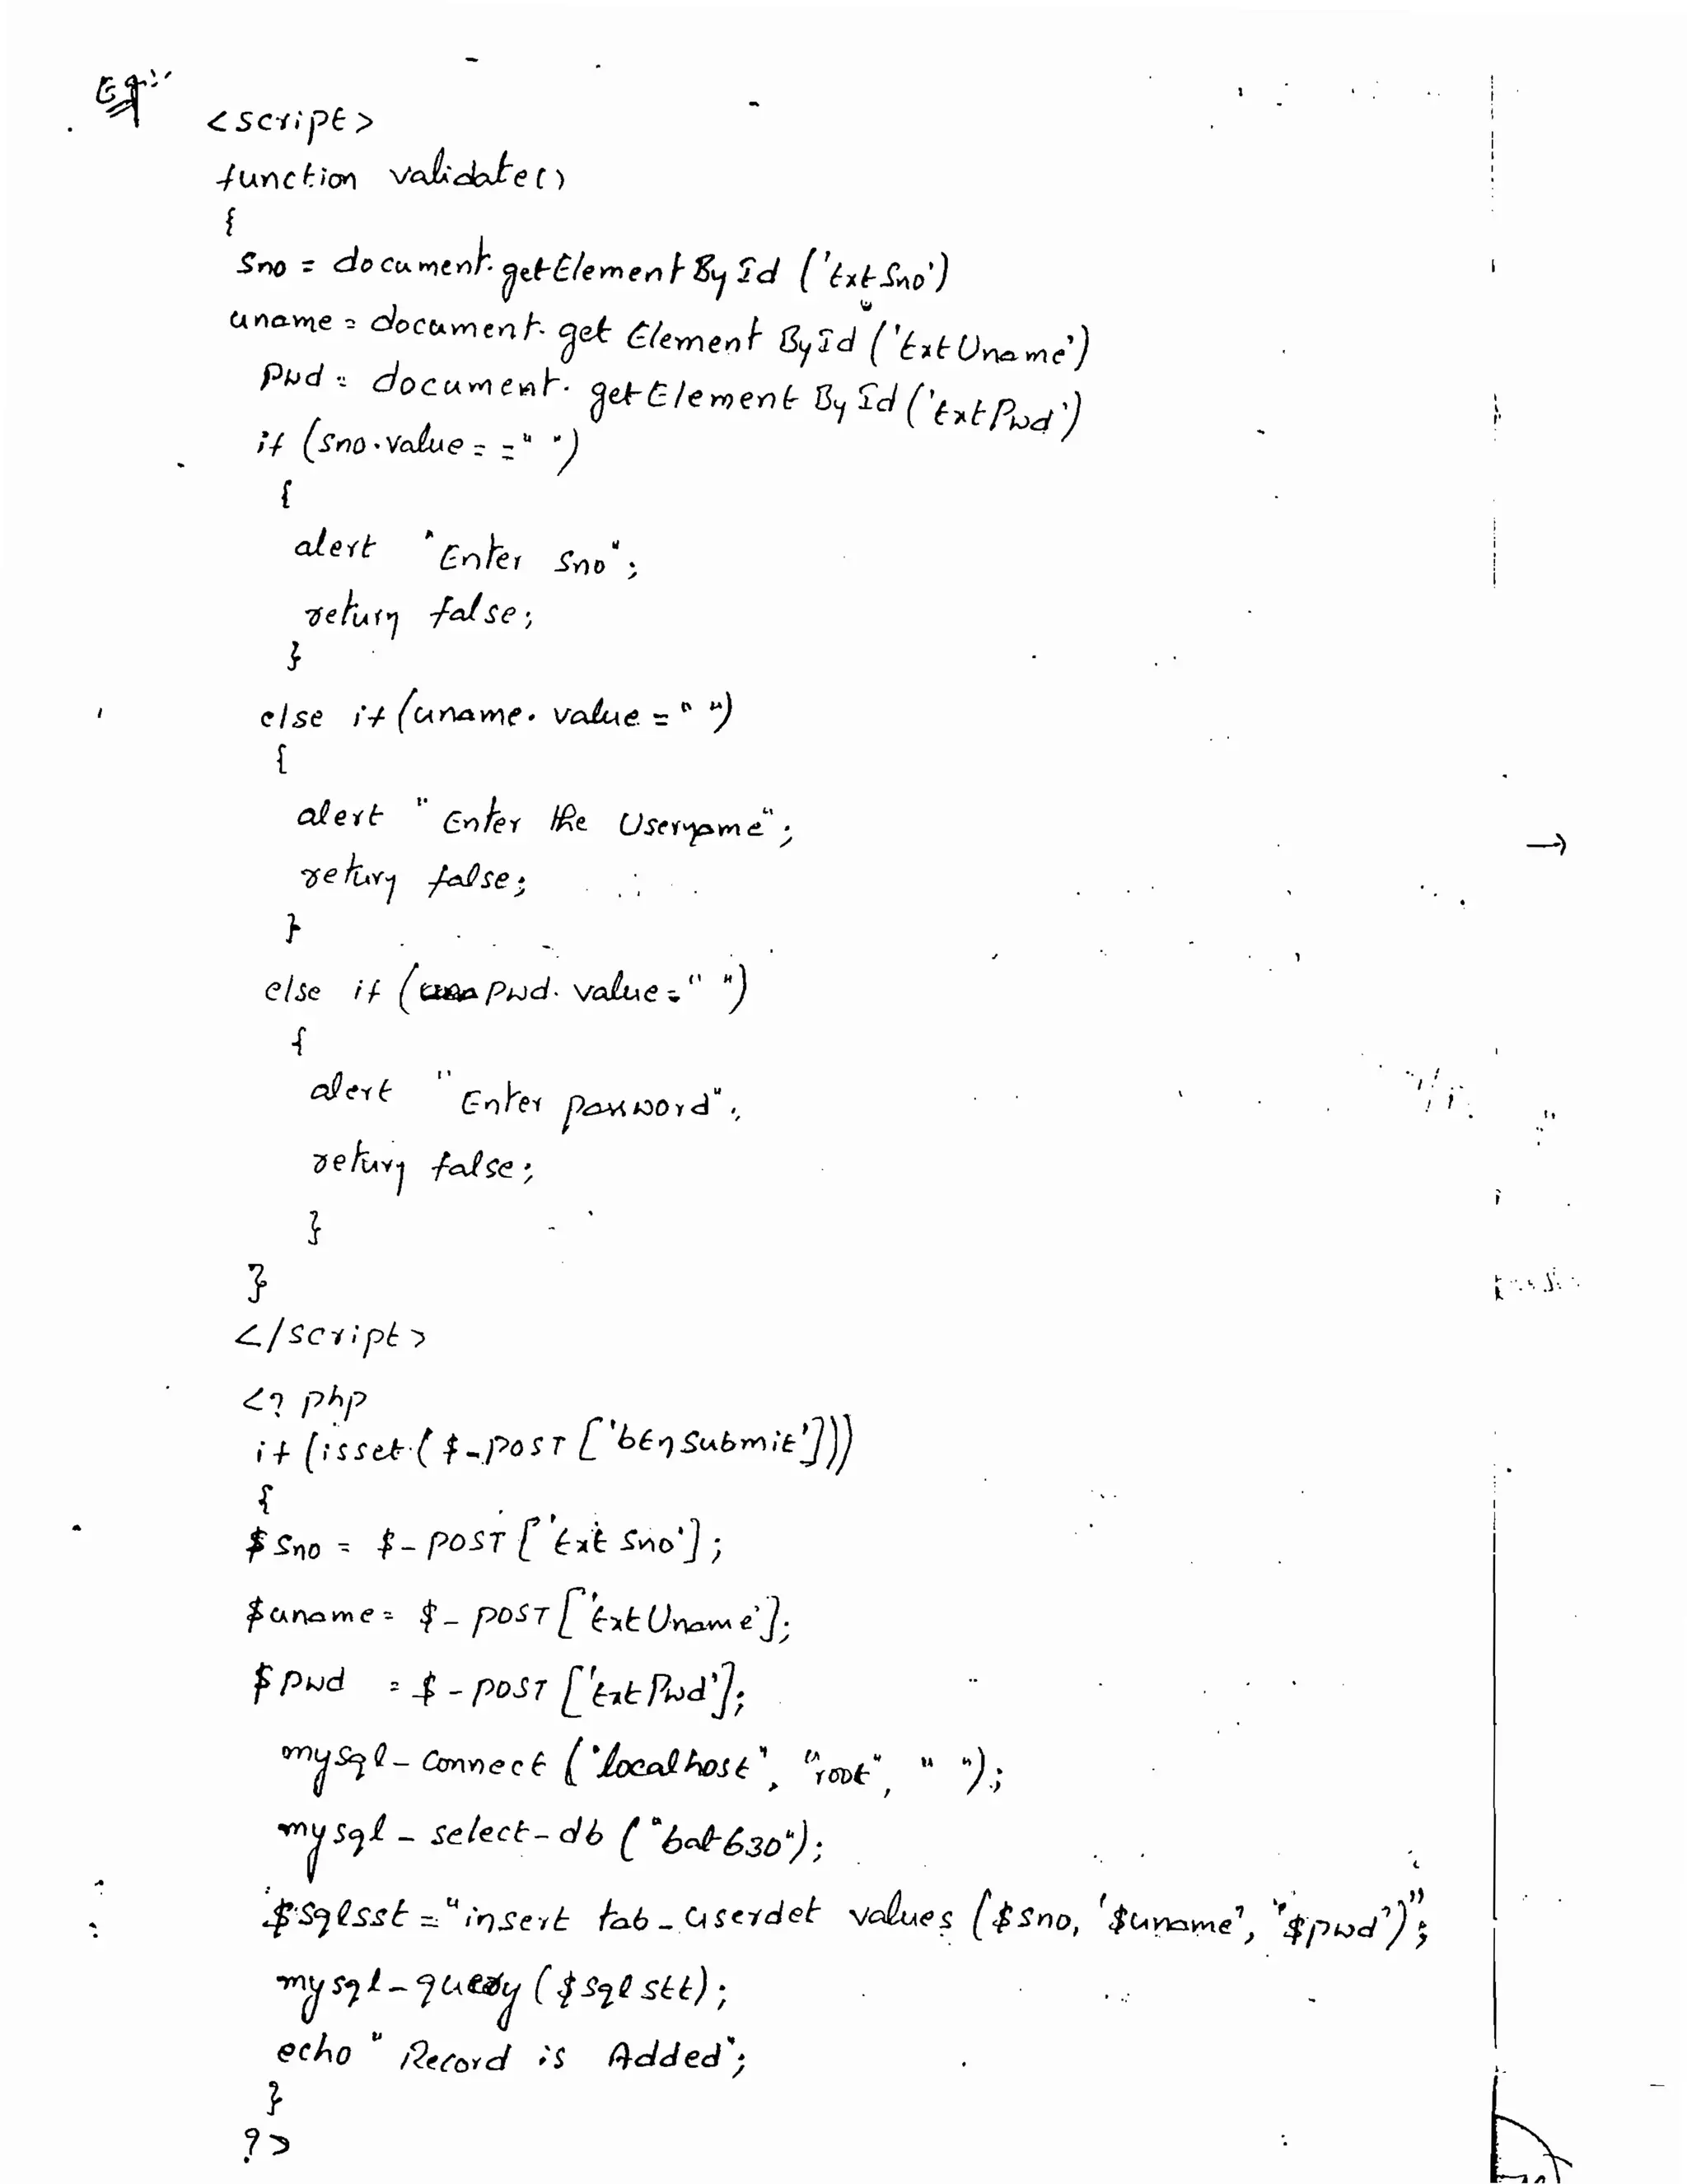 Eg:-
<script>
function validate()
{
sno = document.getElementById ('txtSno')
uname = document.getElementById ('txtUname')
pwd = document.getElementById ('txtPwd')
if (sno.value = = " ")
{
alert "Enter sno";
return false;
}
else if (uname.value = " ")
{
alert "Enter the Username";
return false;
}
else if (pwd.value = " ")
{
alert "Enter password";
return false;
}
}
</script>
<? php
if (isset ($_POST ['btnSubmit']))
{
$sno = $_POST ['txtSno'];
$uname = $_POST ['txtUname'];
$pwd = $_POST ['txtPwd'];
mysql_connect ("localhost", "root", " ");
mysql_select_db ("bat630");
$sqlsst = "insert tab_userdet values ($sno, '$uname', '$pwd')";
mysql_query ($sqlstt);
echo "Record is Added";
}
?>